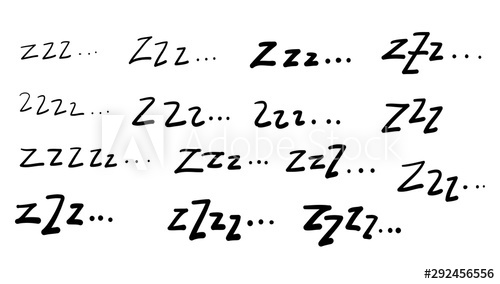 zzz... Zzz... Zzz... zZz...
zzzz... Zzz... Zzz... Zzz
zzzzz... Zzz... zzZ... Zzz...
zZz... zZzz... zZzz...
Adobe Stock
#292456556